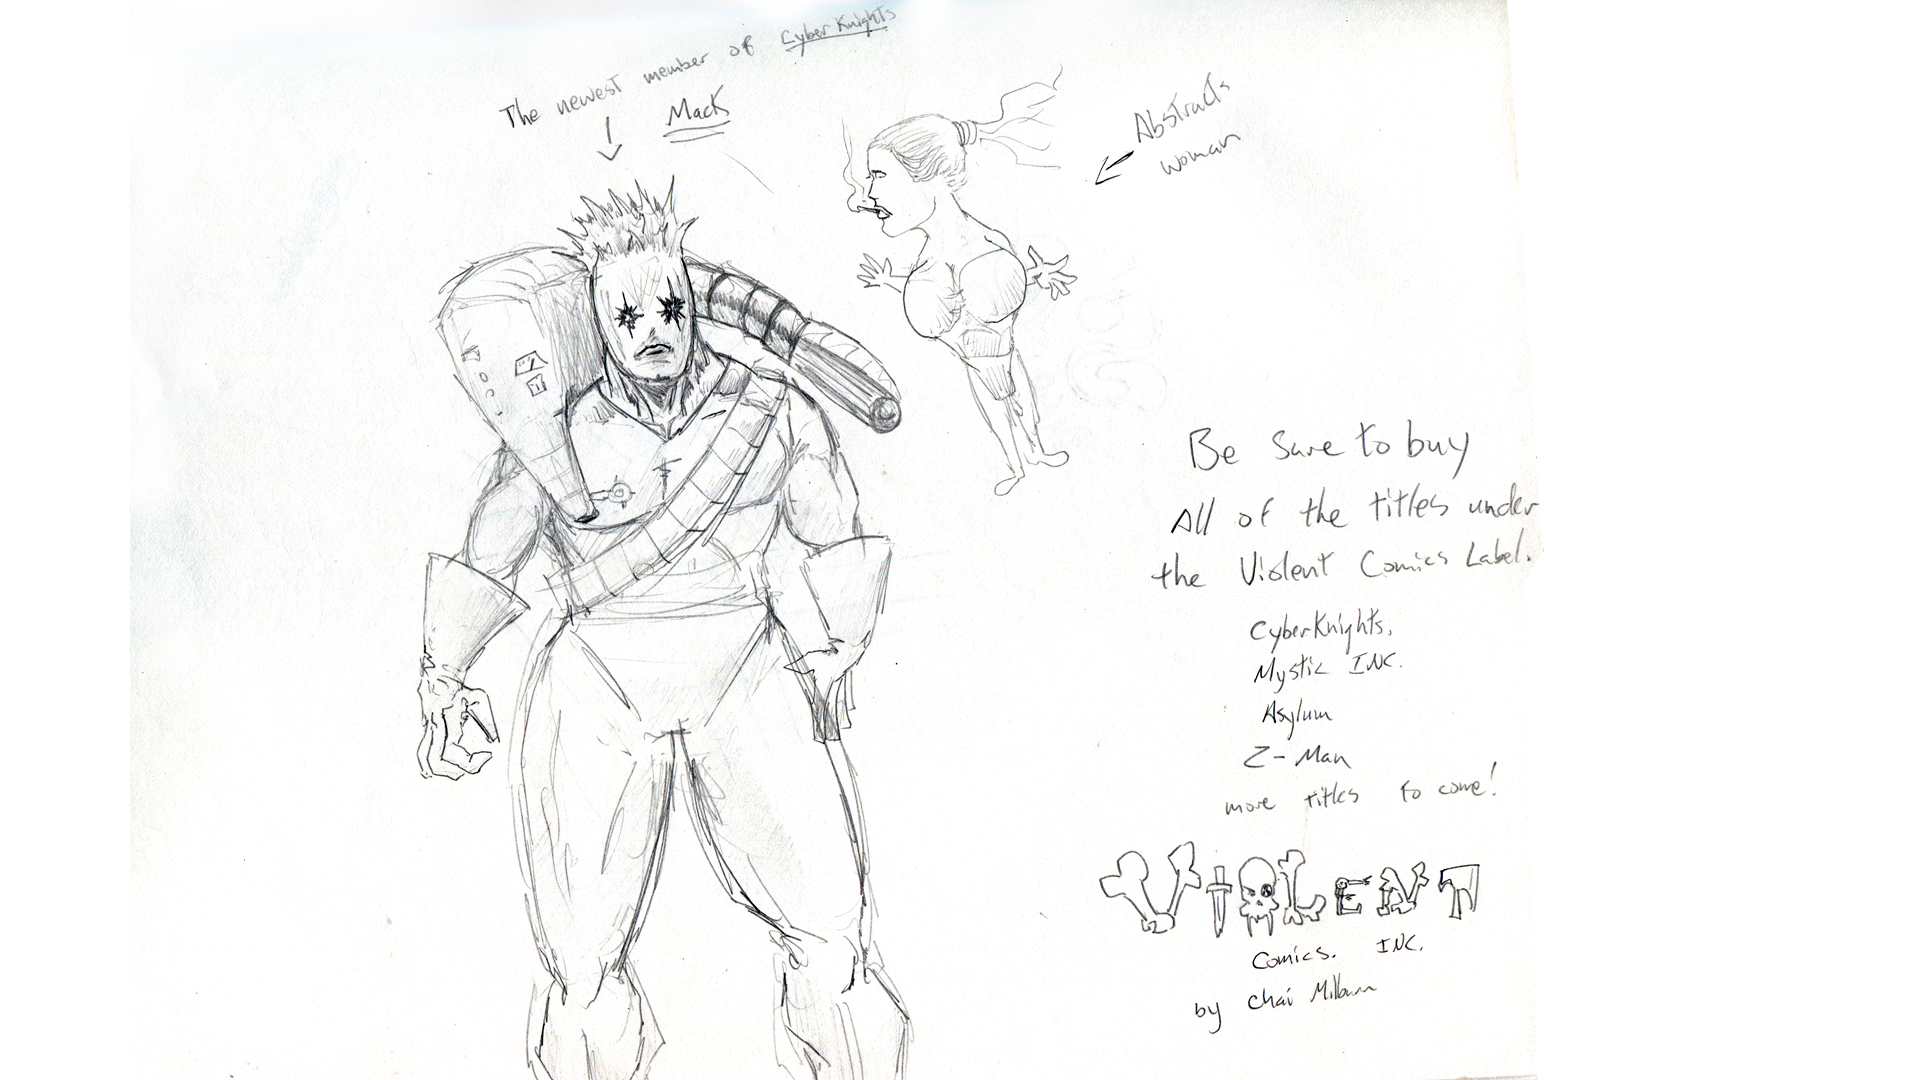 The newest member of CyberKnights
Mack
Abstracts
woman
Be sure to buy
All of the titles under
the Violent Comics Label.
CyberKnights,
Mystic INC.
Asylum
Z-Man
more titles to come!
VIOLENT
Comics. INC.
by Chai Milburn